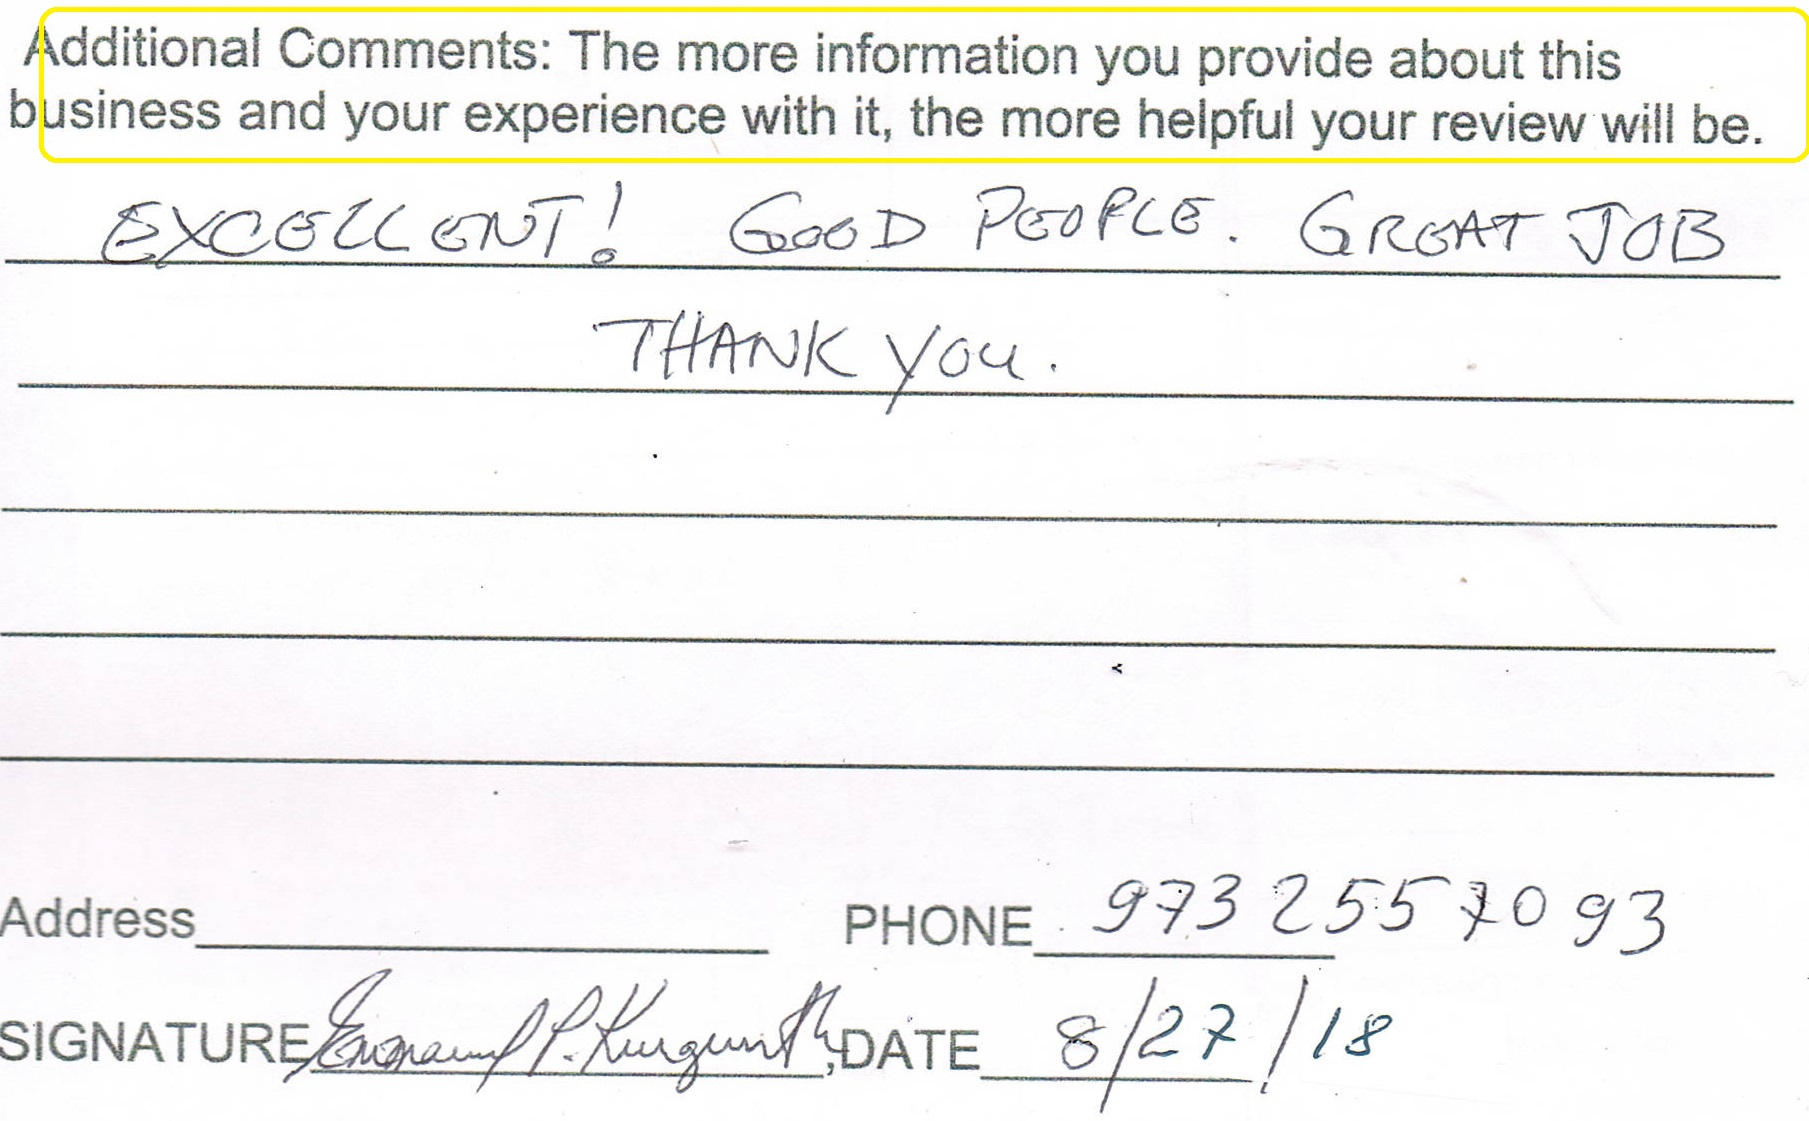 Additional Comments: The more information you provide about this
business and your experience with it, the more helpful your review will be.
EXCELLENT! GOOD PEOPLE. GREAT JOB
THANK YOU.
Address PHONE 973 255 7093
SIGNATURE DATE 8/27/18